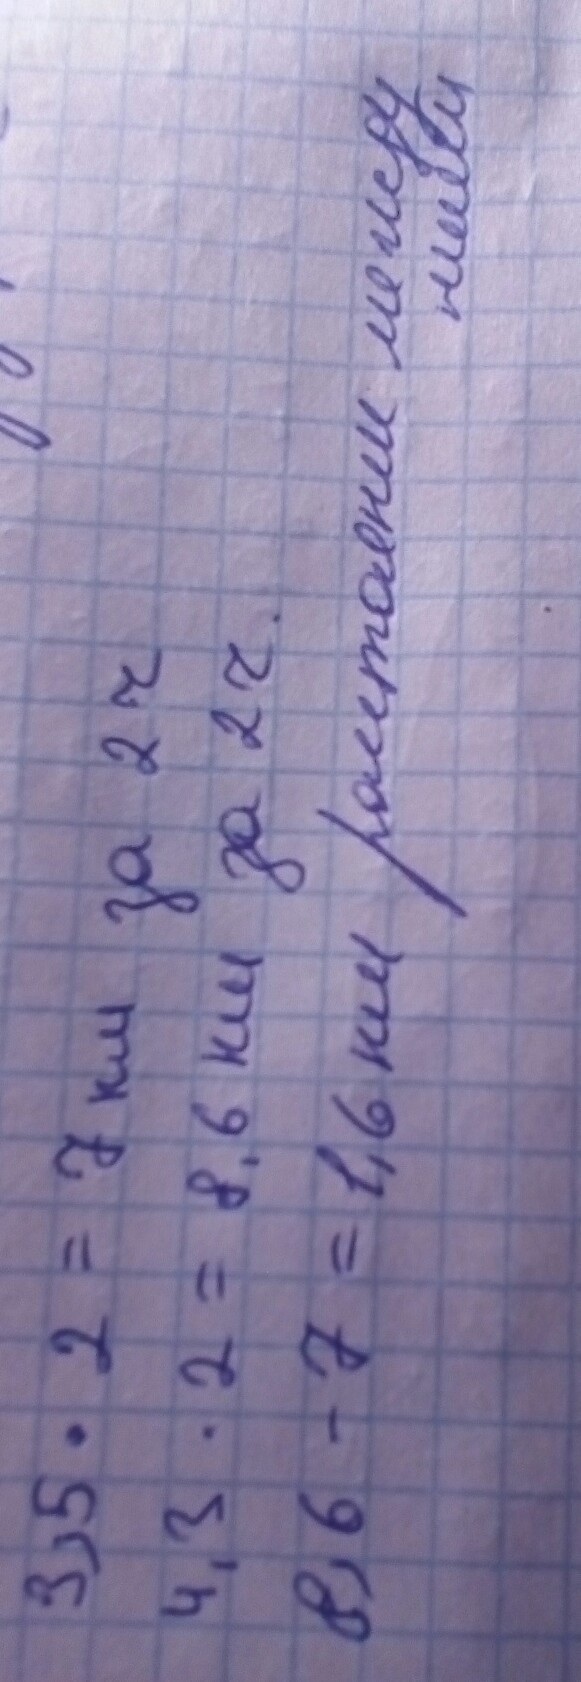 3,5 · 2 = 7 км за 2 ч
4,3 · 2 = 8,6 км за 2 ч.
8,6 - 7 = 1,6 км расстоянии между
ними